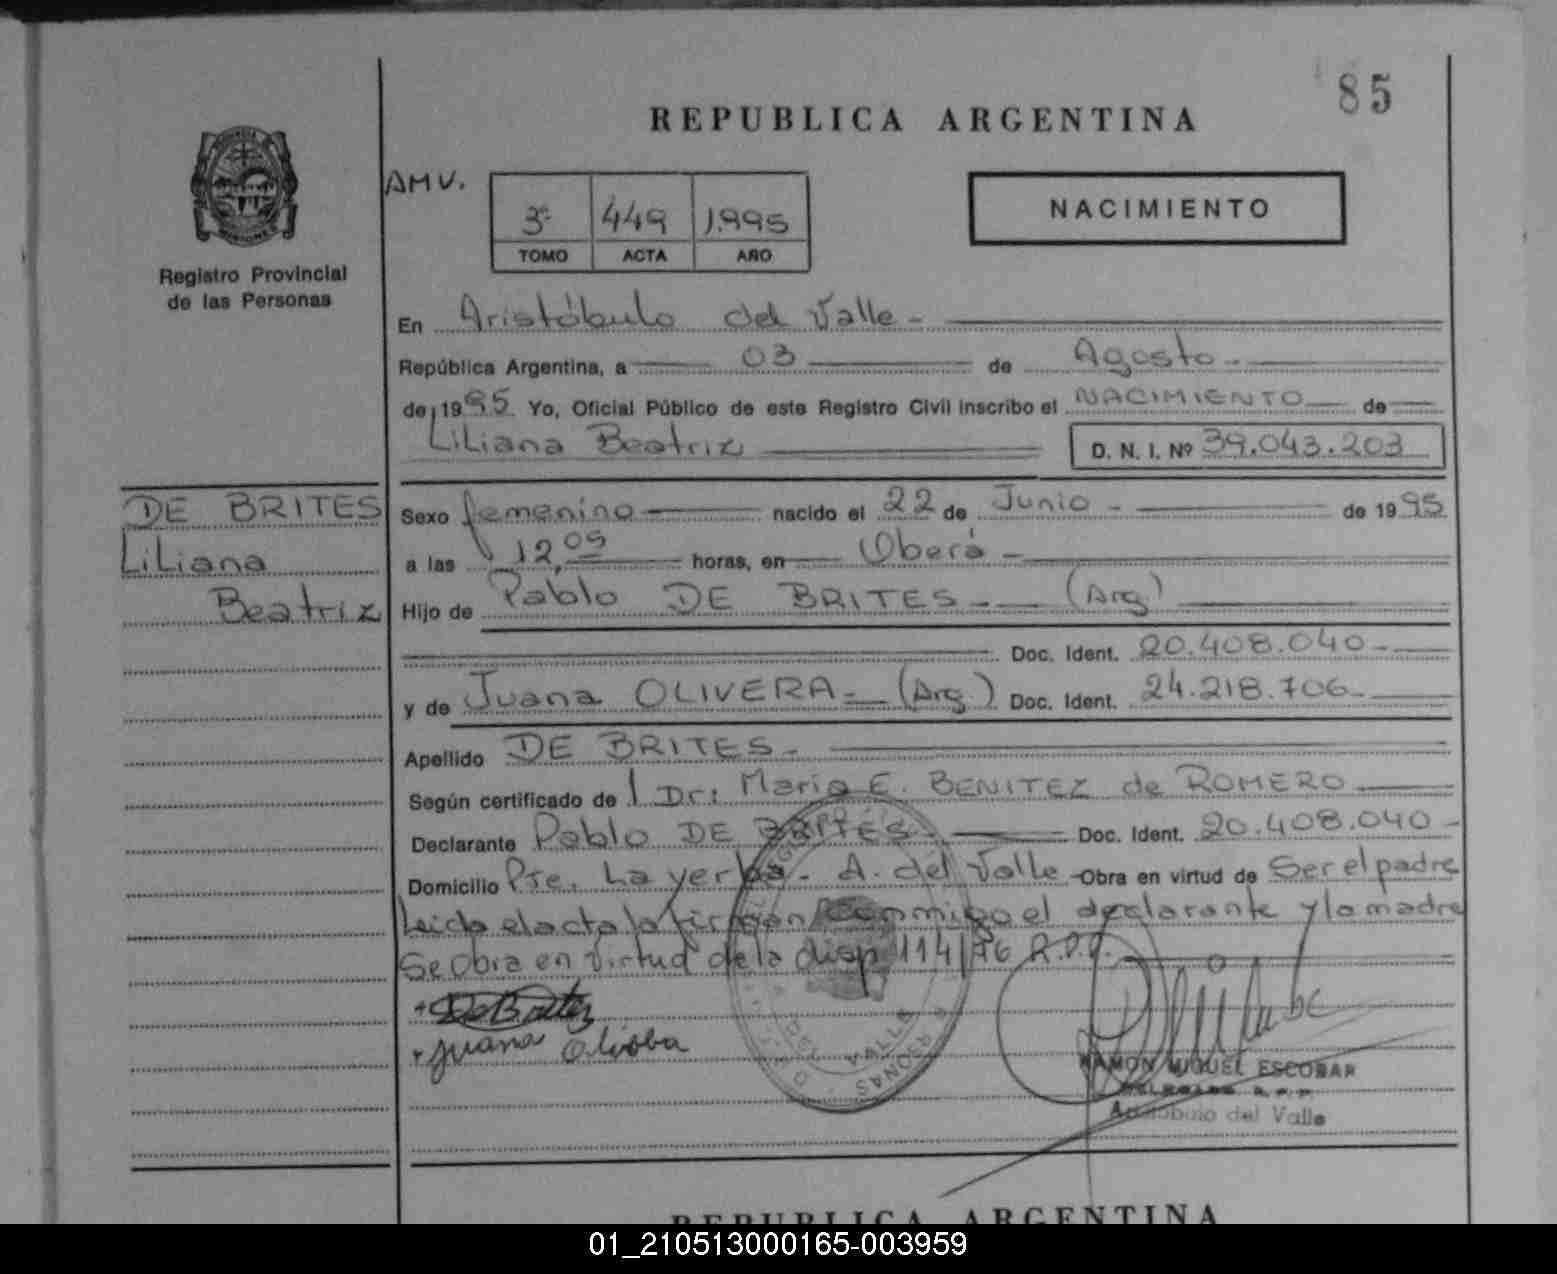 85
REPUBLICA ARGENTINA
AMV.
3º 449 1.995
TOMO ACTA AÑO
NACIMIENTO
Registro Provincial
de las Personas
En Aristóbulo del Valle -
República Argentina, a 03 de Agosto -
de 1995 Yo, Oficial Público de este Registro Civil inscribo el NACIMIENTO de
Liliana Beatriz D. N. I. Nº 39.043.203
DE BRITES
Liliana
Beatriz
Sexo femenino nacido el 22 de Junio - de 1995
a las 12,05 horas, en Oberá -
Hijo de Pablo DE BRITES - (Arg)
Doc. Ident. 20.408.040-
y de Juana OLIVERA - (Arg.) Doc. Ident. 24.218.706-
Apellido DE BRITES -
Según certificado de Dr: María E. BENITEZ de ROMERO
Declarante Pablo DE BRITES - Doc. Ident. 20.408.040 -
Domicilio Pte. La yerba - A. del Valle - Obra en virtud de Ser el padre
Leída el acta la firman conmigo el declarante y la madre
Se obra en virtud de la disp 114/76 R.P.P.
+ De Brites
+ Juana Olivera
RAMON MIGUEL ESCOBAR
DELEGADO R.P.P.
Aristóbulo del Valle
REPUBLICA ARGENTINA
01_210513000165-003959